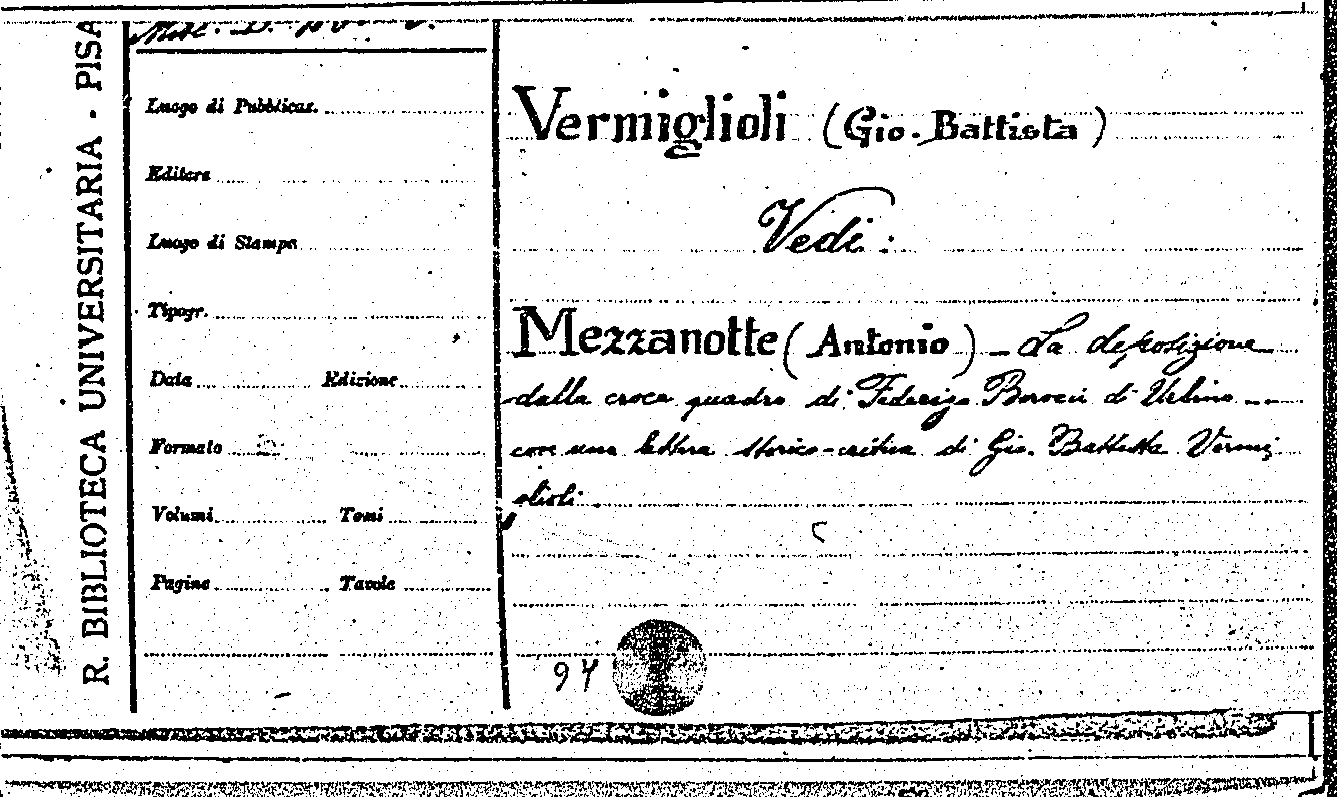 R. BIBLIOTECA UNIVERSITARIA - PISA
Luogo di Pubblicaz.
Editore
Luogo di Stampa
Tipogr.
Data Edizione
Formato
Volumi Tomi
Pagine Tavole
Vermiglioli (Gio. Battista)
Vedi:
Mezzanotte (Antonio) - La deposizione
dalla croce quadro di Federigo Barocci di Urbino --
con una lettera storico-critica di Gio. Battista Vermi
glioli
94